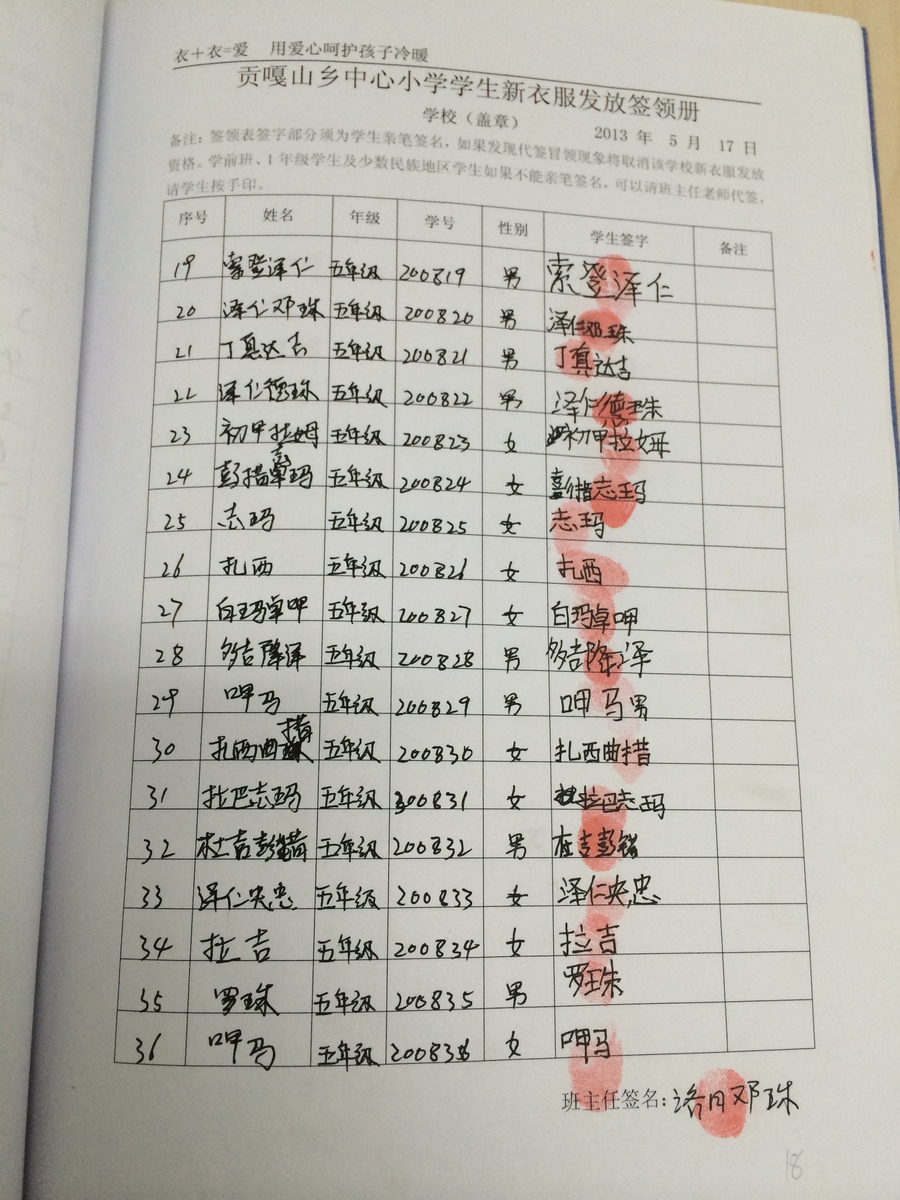 衣+衣=爱 用爱心呵护孩子冷暖
贡嘎山乡中心小学学生新衣服发放签领册
学校（盖章） 2013 年 5 月 17 日
备注：签领表签字部分须为学生亲笔签名，如果发现代签冒领现象将取消该学校新衣服发放
资格。学前班、1 年级学生及少数民族地区学生如果不能亲笔签名，可以请班主任老师代签，
请学生按手印。
序号 姓名 年级 学号 性别 学生签字 备注
19 索登泽仁 五年级 200819 男 索登泽仁
20 泽仁邓珠 五年级 200820 男 泽仁邓珠
21 丁真达吉 五年级 200821 男 丁真达吉
22 泽仁德珠 五年级 200822 男 泽仁德珠
23 初甲拉姆 五年级 200823 女 初甲拉姆
24 彭措志玛 五年级 200824 女 彭措志玛
25 志玛 五年级 200825 女 志玛
26 扎西 五年级 200826 女 扎西
27 白玛卓呷 五年级 200827 女 白玛卓呷
28 多吉降泽 五年级 200828 男 多吉降泽
29 呷马 五年级 200829 男 呷马男
30 扎西曲措 五年级 200830 女 扎西曲措
31 拉巴志玛 五年级 200831 女 拉巴志玛
32 杜吉彭错 五年级 200832 男 杜吉彭错
33 泽仁央忠 五年级 200833 女 泽仁央忠
34 拉吉 五年级 200834 女 拉吉
35 罗珠 五年级 200835 男 罗珠
36 呷马 五年级 200836 女 呷马
班主任签名：洛日邓珠
18